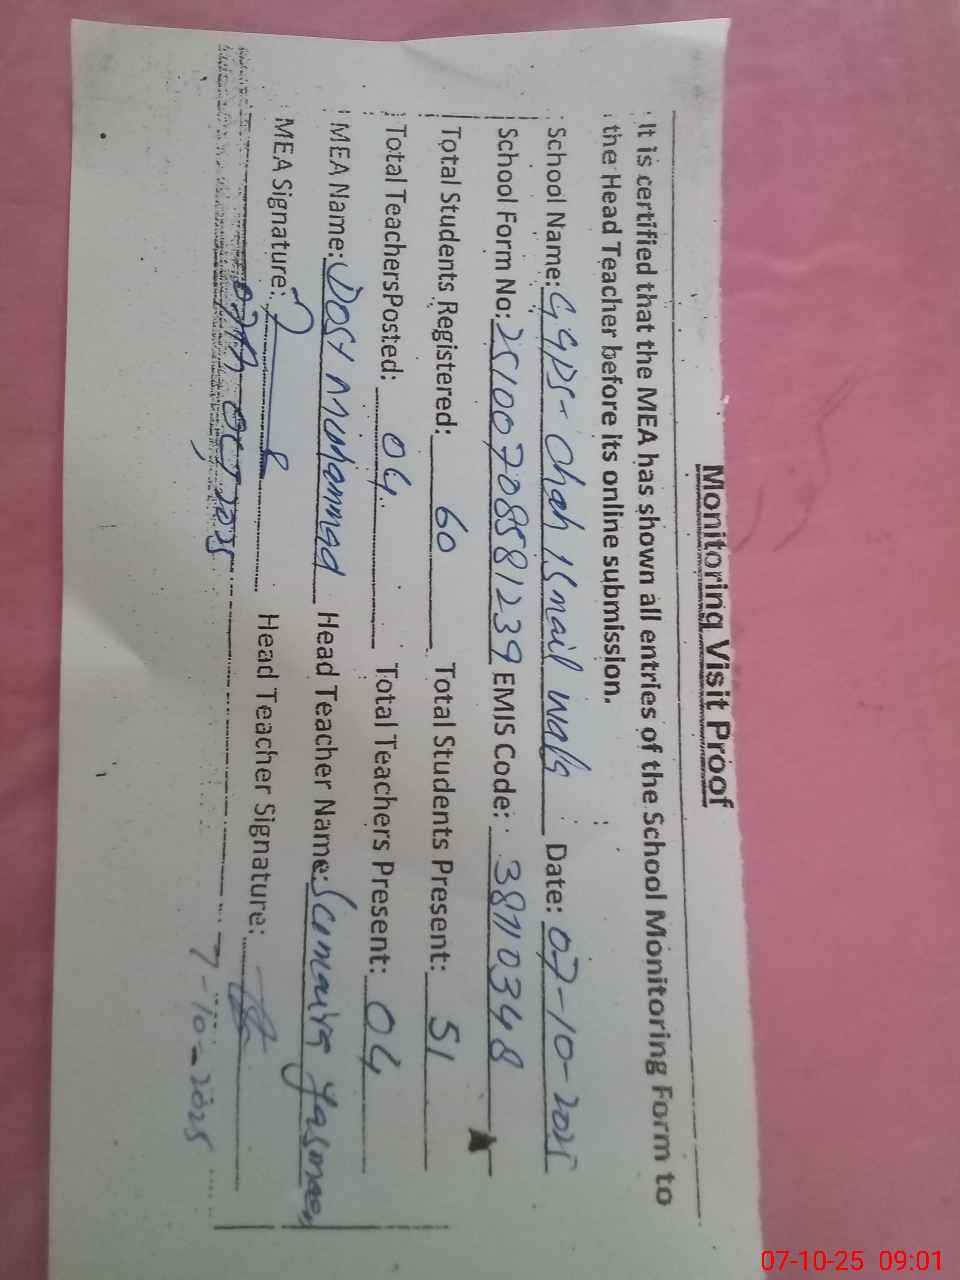 Monitoring Visit Proof
It is certified that the MEA has shown all entries of the School Monitoring Form to
the Head Teacher before its online submission.
School Name: GGPS-Chah Ismail wala Date: 07-10-2025
School Form No: 251007085581239 EMIS Code: 38110348
Total Students Registered: 60 Total Students Present: 51
Total TeachersPosted: 04 Total Teachers Present: 04
MEA Name: Dost Muhammad Head Teacher Name: Sumaira Yasmeen
MEA Signature: Head Teacher Signature:
07th Oct 2025
7-10-2025
07-10-25 09:01